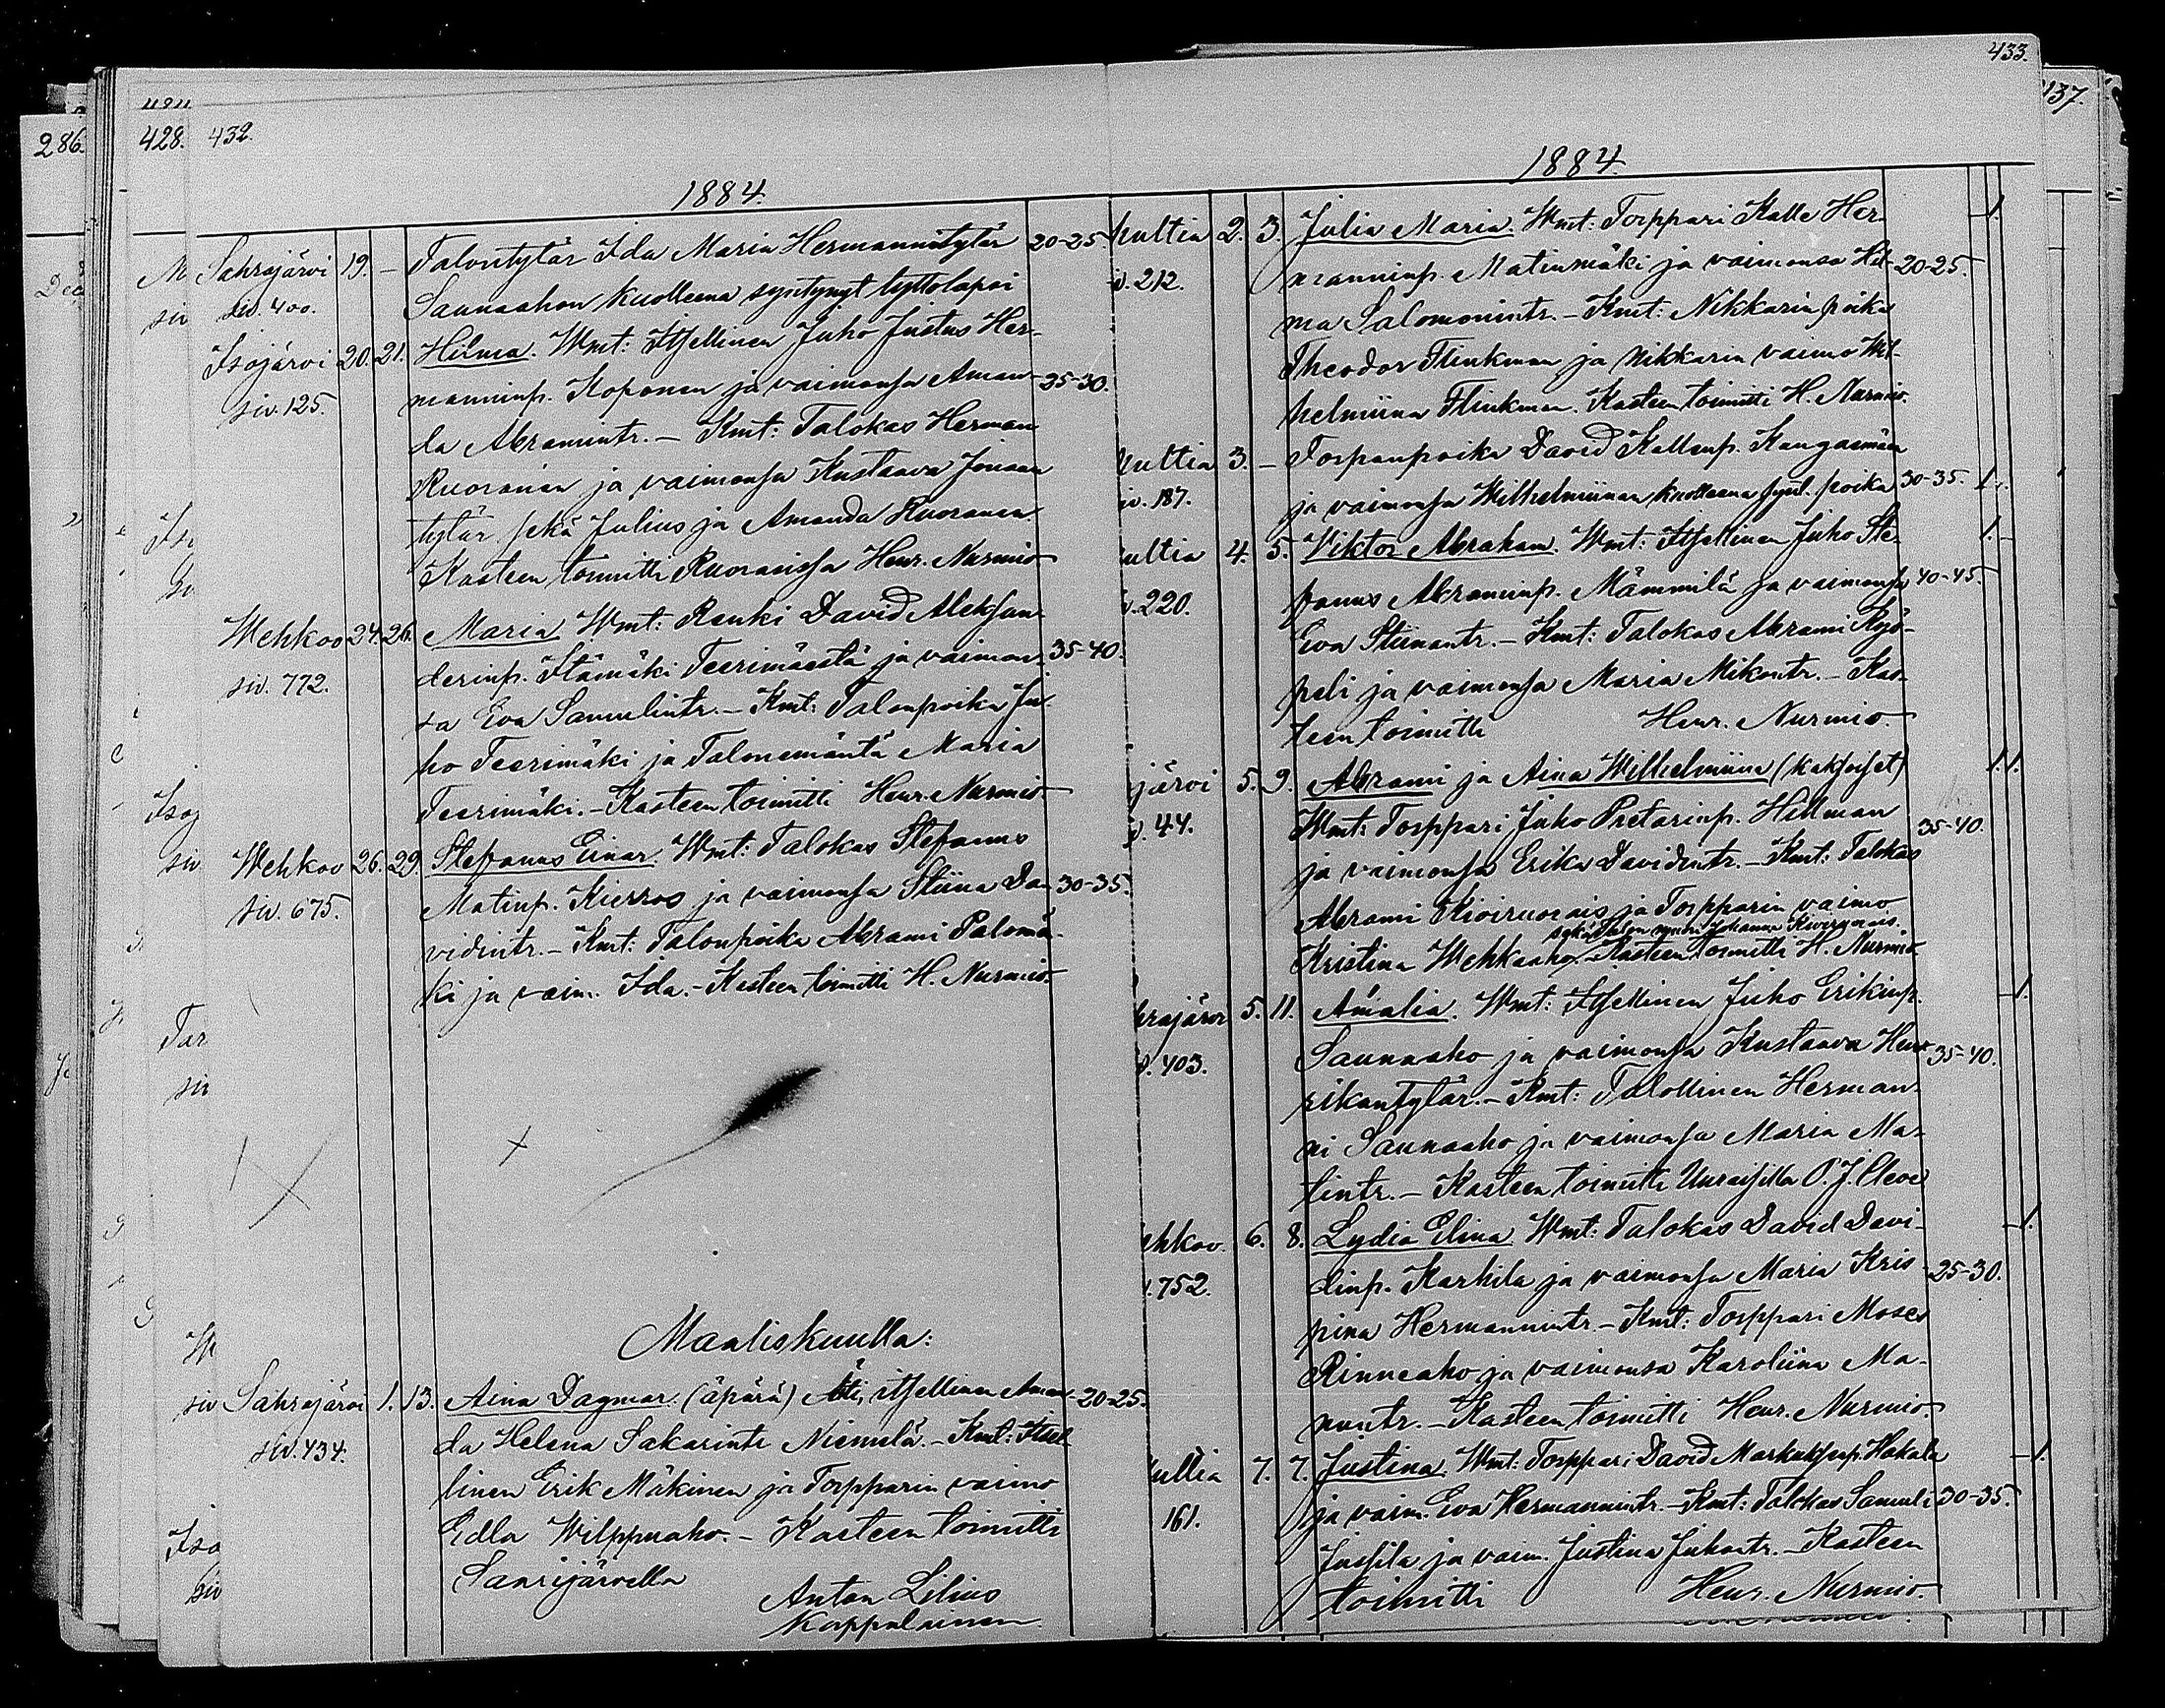 286.
428.
432.
1884.
Sahrajärvi 19. – Talontytär Ida Maria Hermannitytär 20-25.
siv. 400. Saunaahon kuolleena syntynyt tyttölapsi
Isojärvi 20. 21. Hilma. Wmt: Itsellinen Juho Justus Her-
siv. 125. manninp. Koponen ja vaimonsa Aman- 25-30.
da Abramintr. – Kmt: Talokas Herman
Ruoranen ja vaimonsa Kustaava Jonaan
tytär sekä Julius ja Amanda Ruoranen.
Kasteen toimitti Ruorasissa Henr. Nurmio
Wehkoo 24. 26. Maria Wmt: Renki David Aleksan-
siv. 772. derinp. Itämäki Teerimäestä ja vaimon- 35-40.
sa Eva Samulintr. – Kmt: Talonpoika Ju-
ho Teerimäki ja Talonemäntä Maria
Teerimäki. – Kasteen toimitti Henr. Nurmio.
Wehkoo 26. 29. Stefanus Einar. Wmt: Talokas Stefanus
siv. 675. Matinp. Kierros ja vaimonsa Stiina Da- 30-35.
vidintr. – Kmt: Talonpoika Abrami Palomä-
ki ja vaim. Ida. – Kasteen toimitti H. Nurmio.
Maaliskuulla:
Sahrajärvi 1. 13. Aina Dagmar. (äpärä) Äiti, itsellinen Aman- 20-25.
siv. 434. da Helena Sakarintr Niemelä. – Kmt: Itsel-
linen Erik Mäkinen ja Torpparin vaimo
Edla Wilppuaho. – Kasteen toimitti
Saarijärvella
Anton Lilius
Kappalainen.
433.
137.
1884.
ultia 2. 3. Julia Maria. Wmt: Torppari Kalle Her- – 1.
212. manninp. Matinmäki ja vaimonsa Hil- 20-25.
ma Salomonintr. – Kmt: Nikkarin poika
Theodor Flinkman ja Nikkarin vaimo Wil-
helmiina Flinkman. Kasteen toimitti H. Nurmio.
ultia 3. – Torpanpoika David Kallenp. Kangasmäen
187. ja vaimonsa Wilhelmiinan kuolleena synt. poika 30-35. 1.
ultia 4. 5. Viktor Abraham. Wmt: Itsellinen Juho Ste- 1. –
220. fanus Abraminp. Mämmilä ja vaimonsa 40-45.
Eva Stiinantr. – Kmt: Talokas Abrami Ryö-
peli ja vaimonsa Maria Mikontr. – Kas-
teen toimitti Henr. Nurmio.
järvi 5. 9. Abrami ja Aina Wilhelmiina (kaksoiset) 1. 1.
44. Wmt: Torppari Juho Pretarinp. Hillman 35-40.
ja vaimonsa Erika Davidintr. – Kmt: Talokas
Abrami Kiviruorais ja Torpparin vaimo
sekä Talon Johanna Kiviruorais.
Kristina Wehkaaho. Kasteen toimitti H. Nurmio
rajärvi 5. 11. Amalia. Wmt: Itsellinen Juho Erikinp. – 1.
403. Saunaaho ja vaimonsa Kustaava Hen- 35-40.
rikantytär. – Kmt: Talollinen Herman-
ni Saunaaho ja vaimonsa Maria Ma-
tintr. – Kasteen toimitti Uuraisilla O. J. Cleve
ehkoo 6. 8. Lydia Elina Wmt: Talokas David Davi- – 1.
752. dinp. Karhila ja vaimonsa Maria Kris- 25-30.
pina Hermannintr. – Kmt: Torppari Moses
Rinneaho ja vaimonsa Karoliina Ma-
nintr. – Kasteen toimitti Henr. Nurmio.
ultia 7. 7. Justina. Wmt: Torppari David Markuksenp. Hakala – 1.
161. ja vaim. Eva Hermannintr. – Kmt: Talokas Samuli 30-35.
Jussila ja vaim. Justina Juhontr. – Kasteen
toimitti Henr. Nurmio.